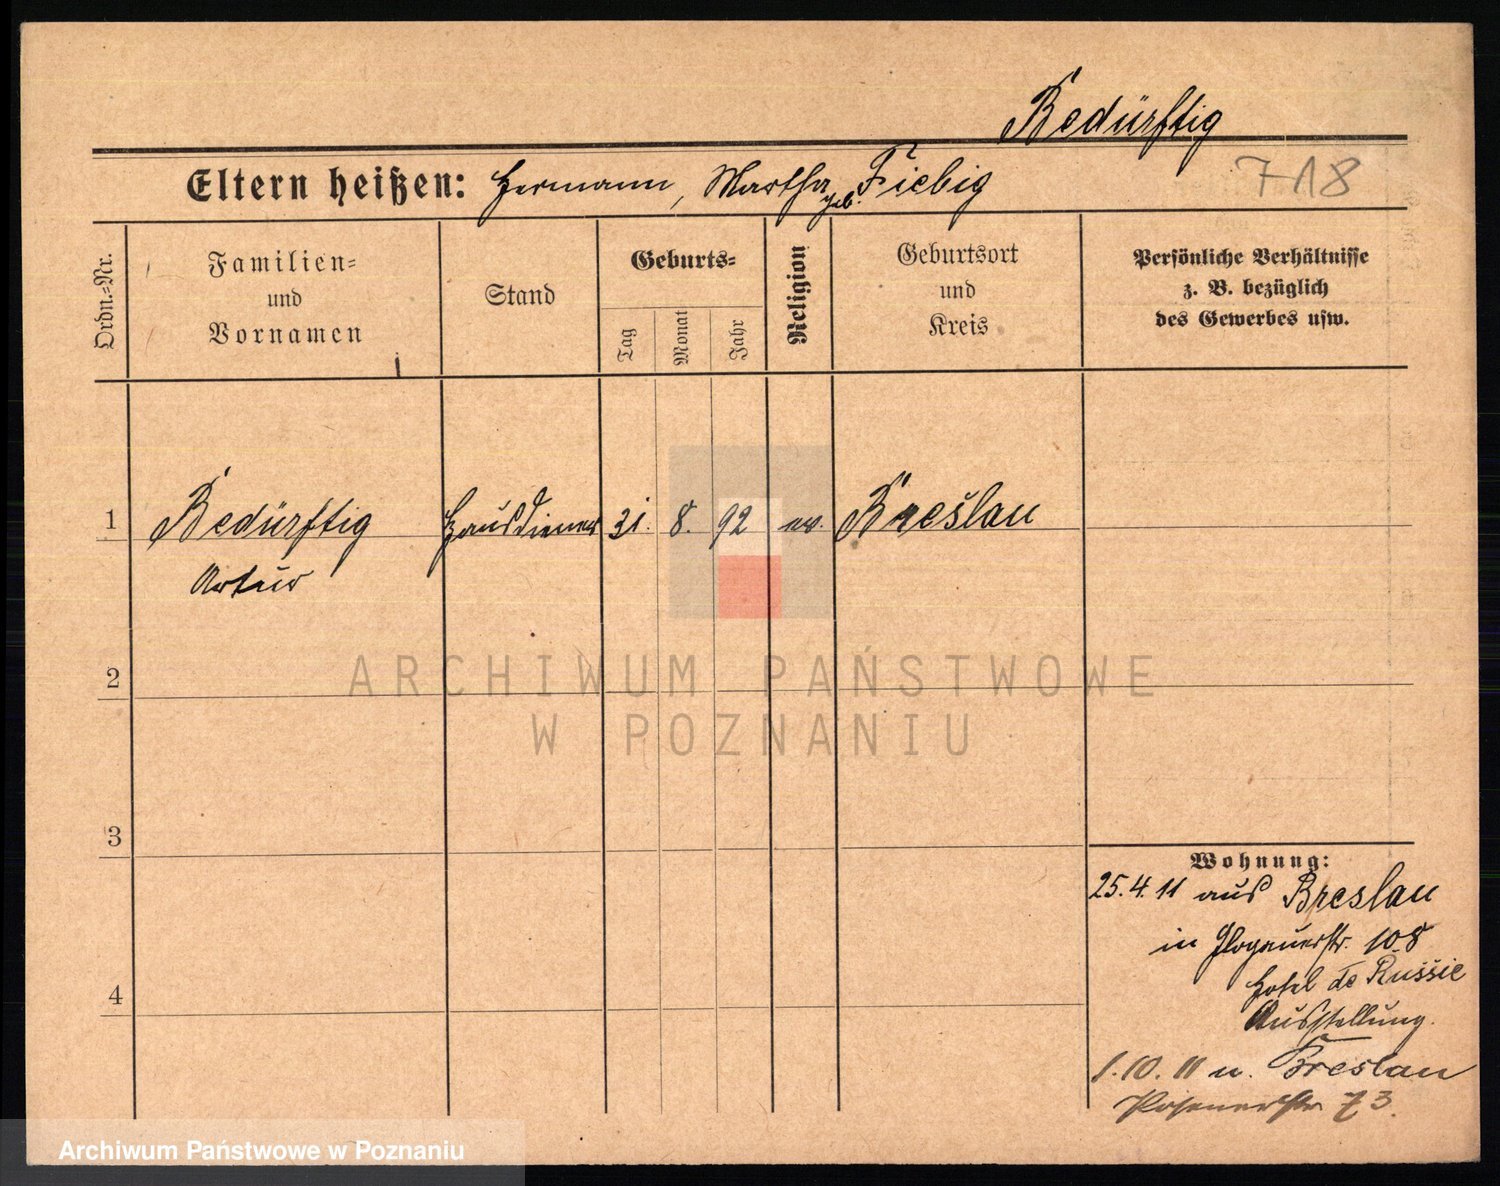 Bedürftig
Eltern heißen: Hermann, Martha geb. Fiebig
718
Ordn.=Nr.
Familien=
und
Vornamen
Stand
Geburts=
Tag
Monat
Jahr
Religion
Geburtsort
und
Kreis
Persönliche Verhältnisse
z. B. bezüglich
des Gewerbes usw.
1 Bedürftig Hausdiener 31. 8. 92 ev. Breslau
Artur
2
3
4
Wohnung:
25.4.11 aus Breslau
in Glogauerstr. 108
Hotel de Russie
Ausstellung.
1.10.11 n. Breslau
Posenerstr. 73.
ARCHIWUM PAŃSTWOWE
W POZNANIU
Archiwum Państwowe w Poznaniu